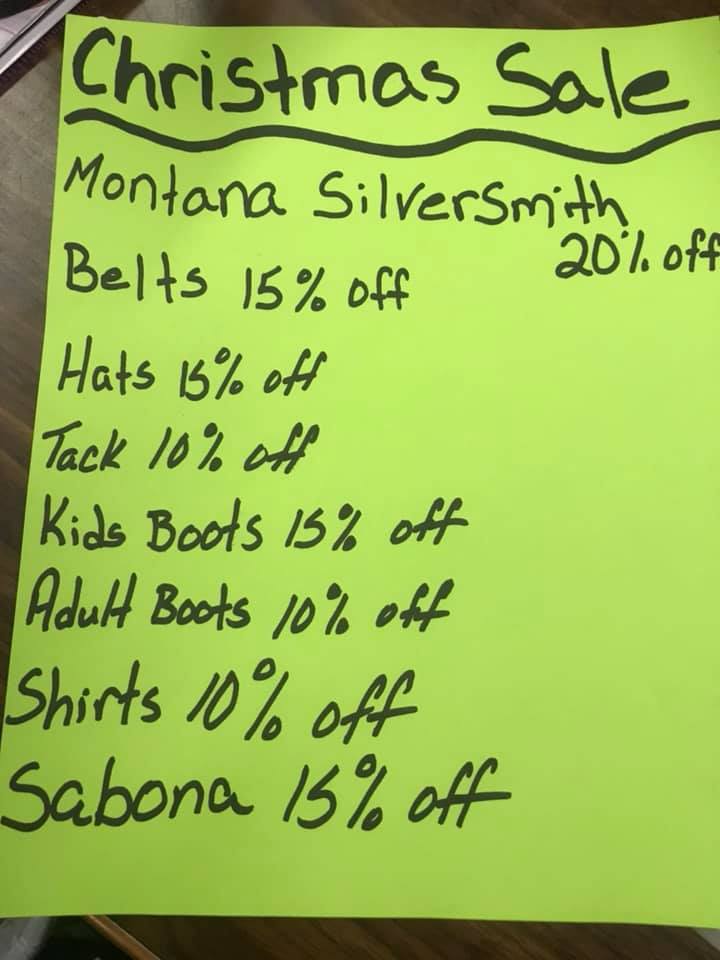 Christmas Sale
Montana Silversmith
20% off
Belts 15% off
Hats 15% off
Tack 10% off
Kids Boots 15% off
Adult Boots 10% off
Shirts 10% off
Sabona 15% off